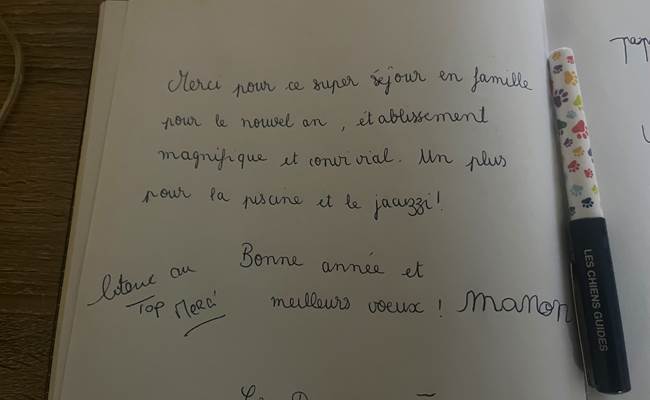 Merci pour ce super séjour en famille
pour le nouvel an, établissement
magnifique et convivial. Un plus
pour la piscine et le jacuzzi!
Bonne année et
meilleurs voeux! Manon
au
TOP Merci
LES CHIENS GUIDES